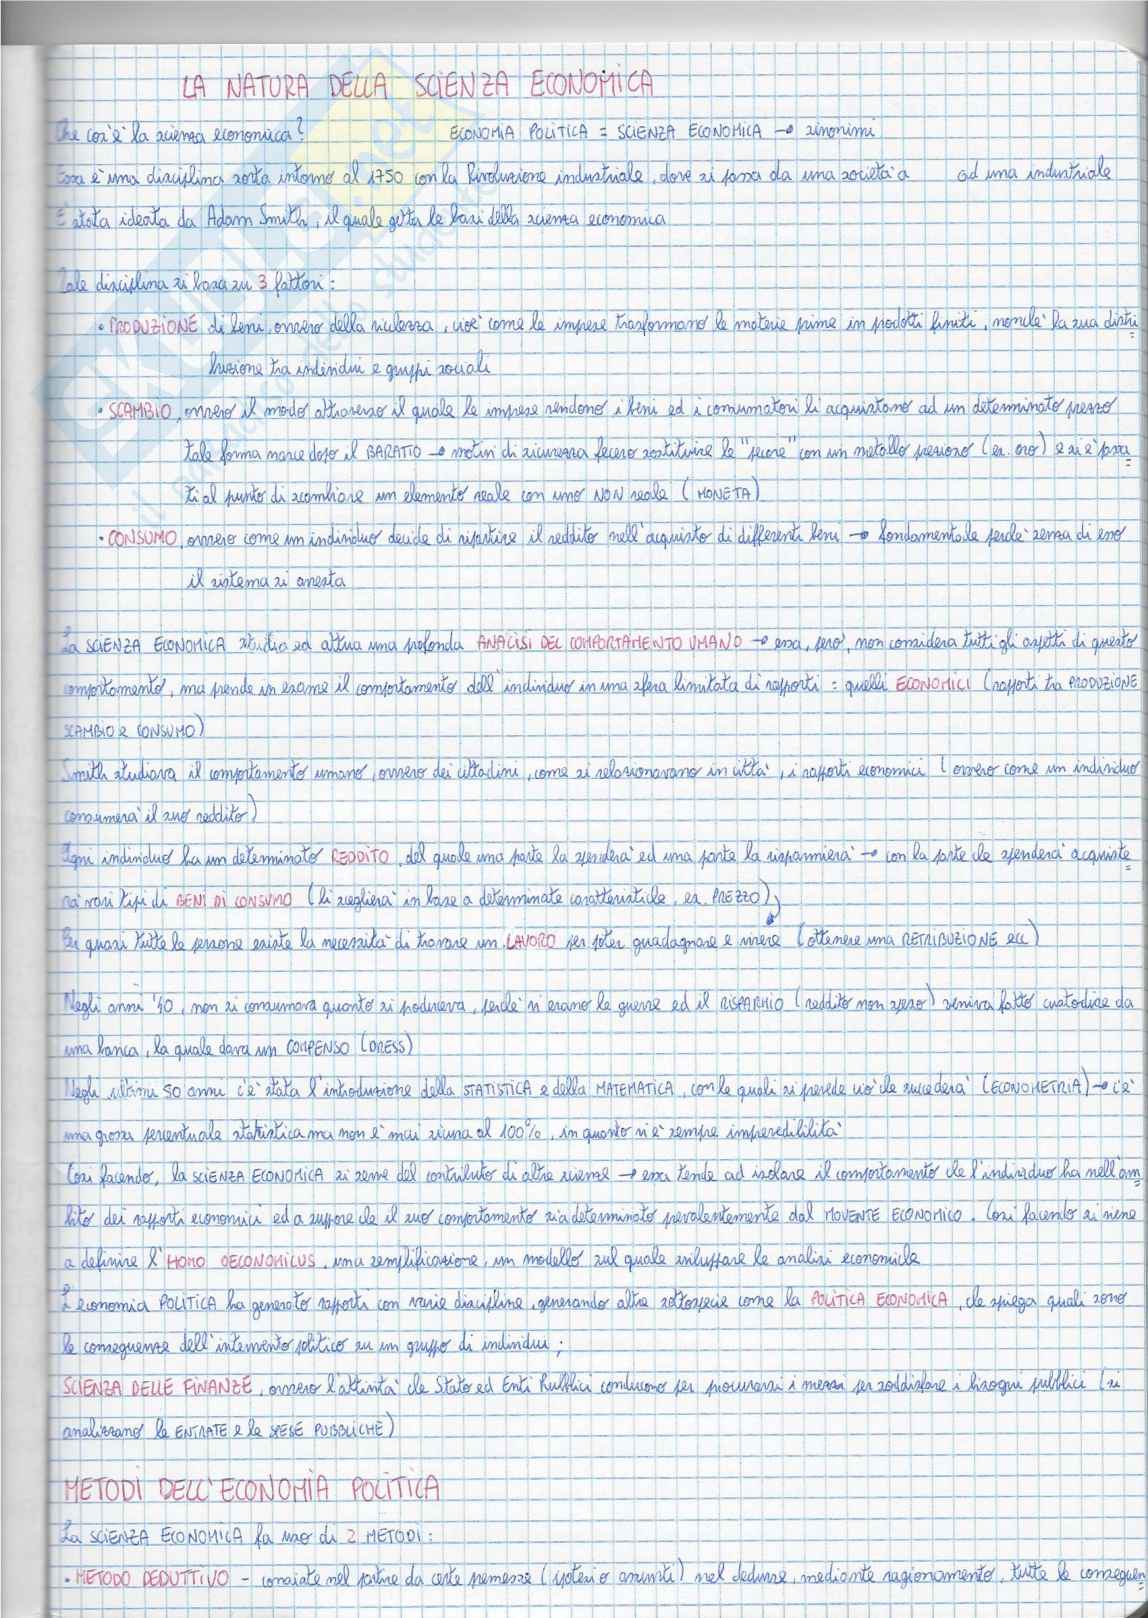 LA NATURA DELLA SCIENZA ECONOMICA
Che cos'è la scienza economica? ECONOMIA POLITICA = SCIENZA ECONOMICA → sinonimi
Essa è una disciplina sorta intorno al 1750 con la Rivoluzione industriale, dove si passa da una società a ad una industriale
E' stata ideata da Adam Smith, il quale getta le basi della scienza economica
Tale disciplina si basa su 3 fattori:
• PRODUZIONE di beni, ovvero della ricchezza, cioè come le imprese trasformano le materie prime in prodotti finiti, nonché la sua distri
buzione tra individui e gruppi sociali
• SCAMBIO, ovvero il modo attraverso il quale le imprese vendono i beni ed i consumatori li acquistano ad un determinato prezzo
tale forma nasce dopo il BARATTO → motivi di sicurezza fecero sostituire le "pecore" con un metallo prezioso (es. oro) e si è passa
ti al punto di scambiare un elemento reale con uno NON reale (MONETA)
• CONSUMO, ovvero come un individuo decide di ripartire il reddito nell'acquisto di differenti beni → fondamentale perché senza di esso
il sistema si arresta
La SCIENZA ECONOMICA studia ed attua una profonda ANALISI DEL COMPORTAMENTO UMANO → essa, però, non considera tutti gli aspetti di questo
comportamento, ma prende in esame il comportamento dell'individuo in una sfera limitata di rapporti: quelli ECONOMICI (rapporti tra PRODUZIONE
SCAMBIO e CONSUMO)
Smith studiava il comportamento umano, ovvero dei cittadini, come si relazionavano in città, i rapporti economici (ovvero come un individuo
consumerà il suo reddito)
Ogni individuo ha un determinato REDDITO, del quale una parte la spenderà ed una parte la risparmierà → con la parte che spenderà acquiste
rà vari tipi di BENI DI CONSUMO (li sceglierà in base a determinate caratteristiche, es. PREZZO)
Per quasi tutte le persone esiste la necessità di trovare un LAVORO per poter guadagnare e vivere (ottenere una RETRIBUZIONE ecc)
Negli anni '40, non si consumava quanto si produceva, perché vi erano le guerre ed il RISPARMIO (reddito non speso) veniva fatto custodire da
una banca, la quale dava un COMPENSO
Negli ultimi 50 anni c'è stata l'introduzione della STATISTICA e della MATEMATICA, con le quali si prevede ciò che succederà (ECONOMETRIA) → c'è
una grossa percentuale statistica ma non è mai sicura al 100%, in quanto vi è sempre imprevedibilità
Così facendo, la SCIENZA ECONOMICA si serve del contributo di altre scienze → essa tende ad isolare il comportamento che l'individuo ha nell'am
bito dei rapporti economici ed a supporre che il suo comportamento sia determinato prevalentemente dal MOVENTE ECONOMICO. Così facendo si viene
a definire l'HOMO OECONOMICUS, una semplificazione, un modello sul quale sviluppare le analisi economiche
L'economia POLITICA ha generato rapporti con varie discipline, generando altre sottospecie come la POLITICA ECONOMICA, che spiega quali sono
le conseguenze dell'intervento politico su un gruppo di individui;
SCIENZA DELLE FINANZE, ovvero l'attività che Stato ed Enti Pubblici conducono per procurarsi i mezzi per soddisfare i bisogni pubblici (si
analizzano le ENTRATE e le SPESE PUBBLICHE)
METODI DELL'ECONOMIA POLITICA
La SCIENZA ECONOMICA fa uso di 2 METODI:
• METODO DEDUTTIVO - consiste nel partire da certe premesse (ipotesi o assunti) nel dedurre, mediante ragionamento, tutte le conseguen